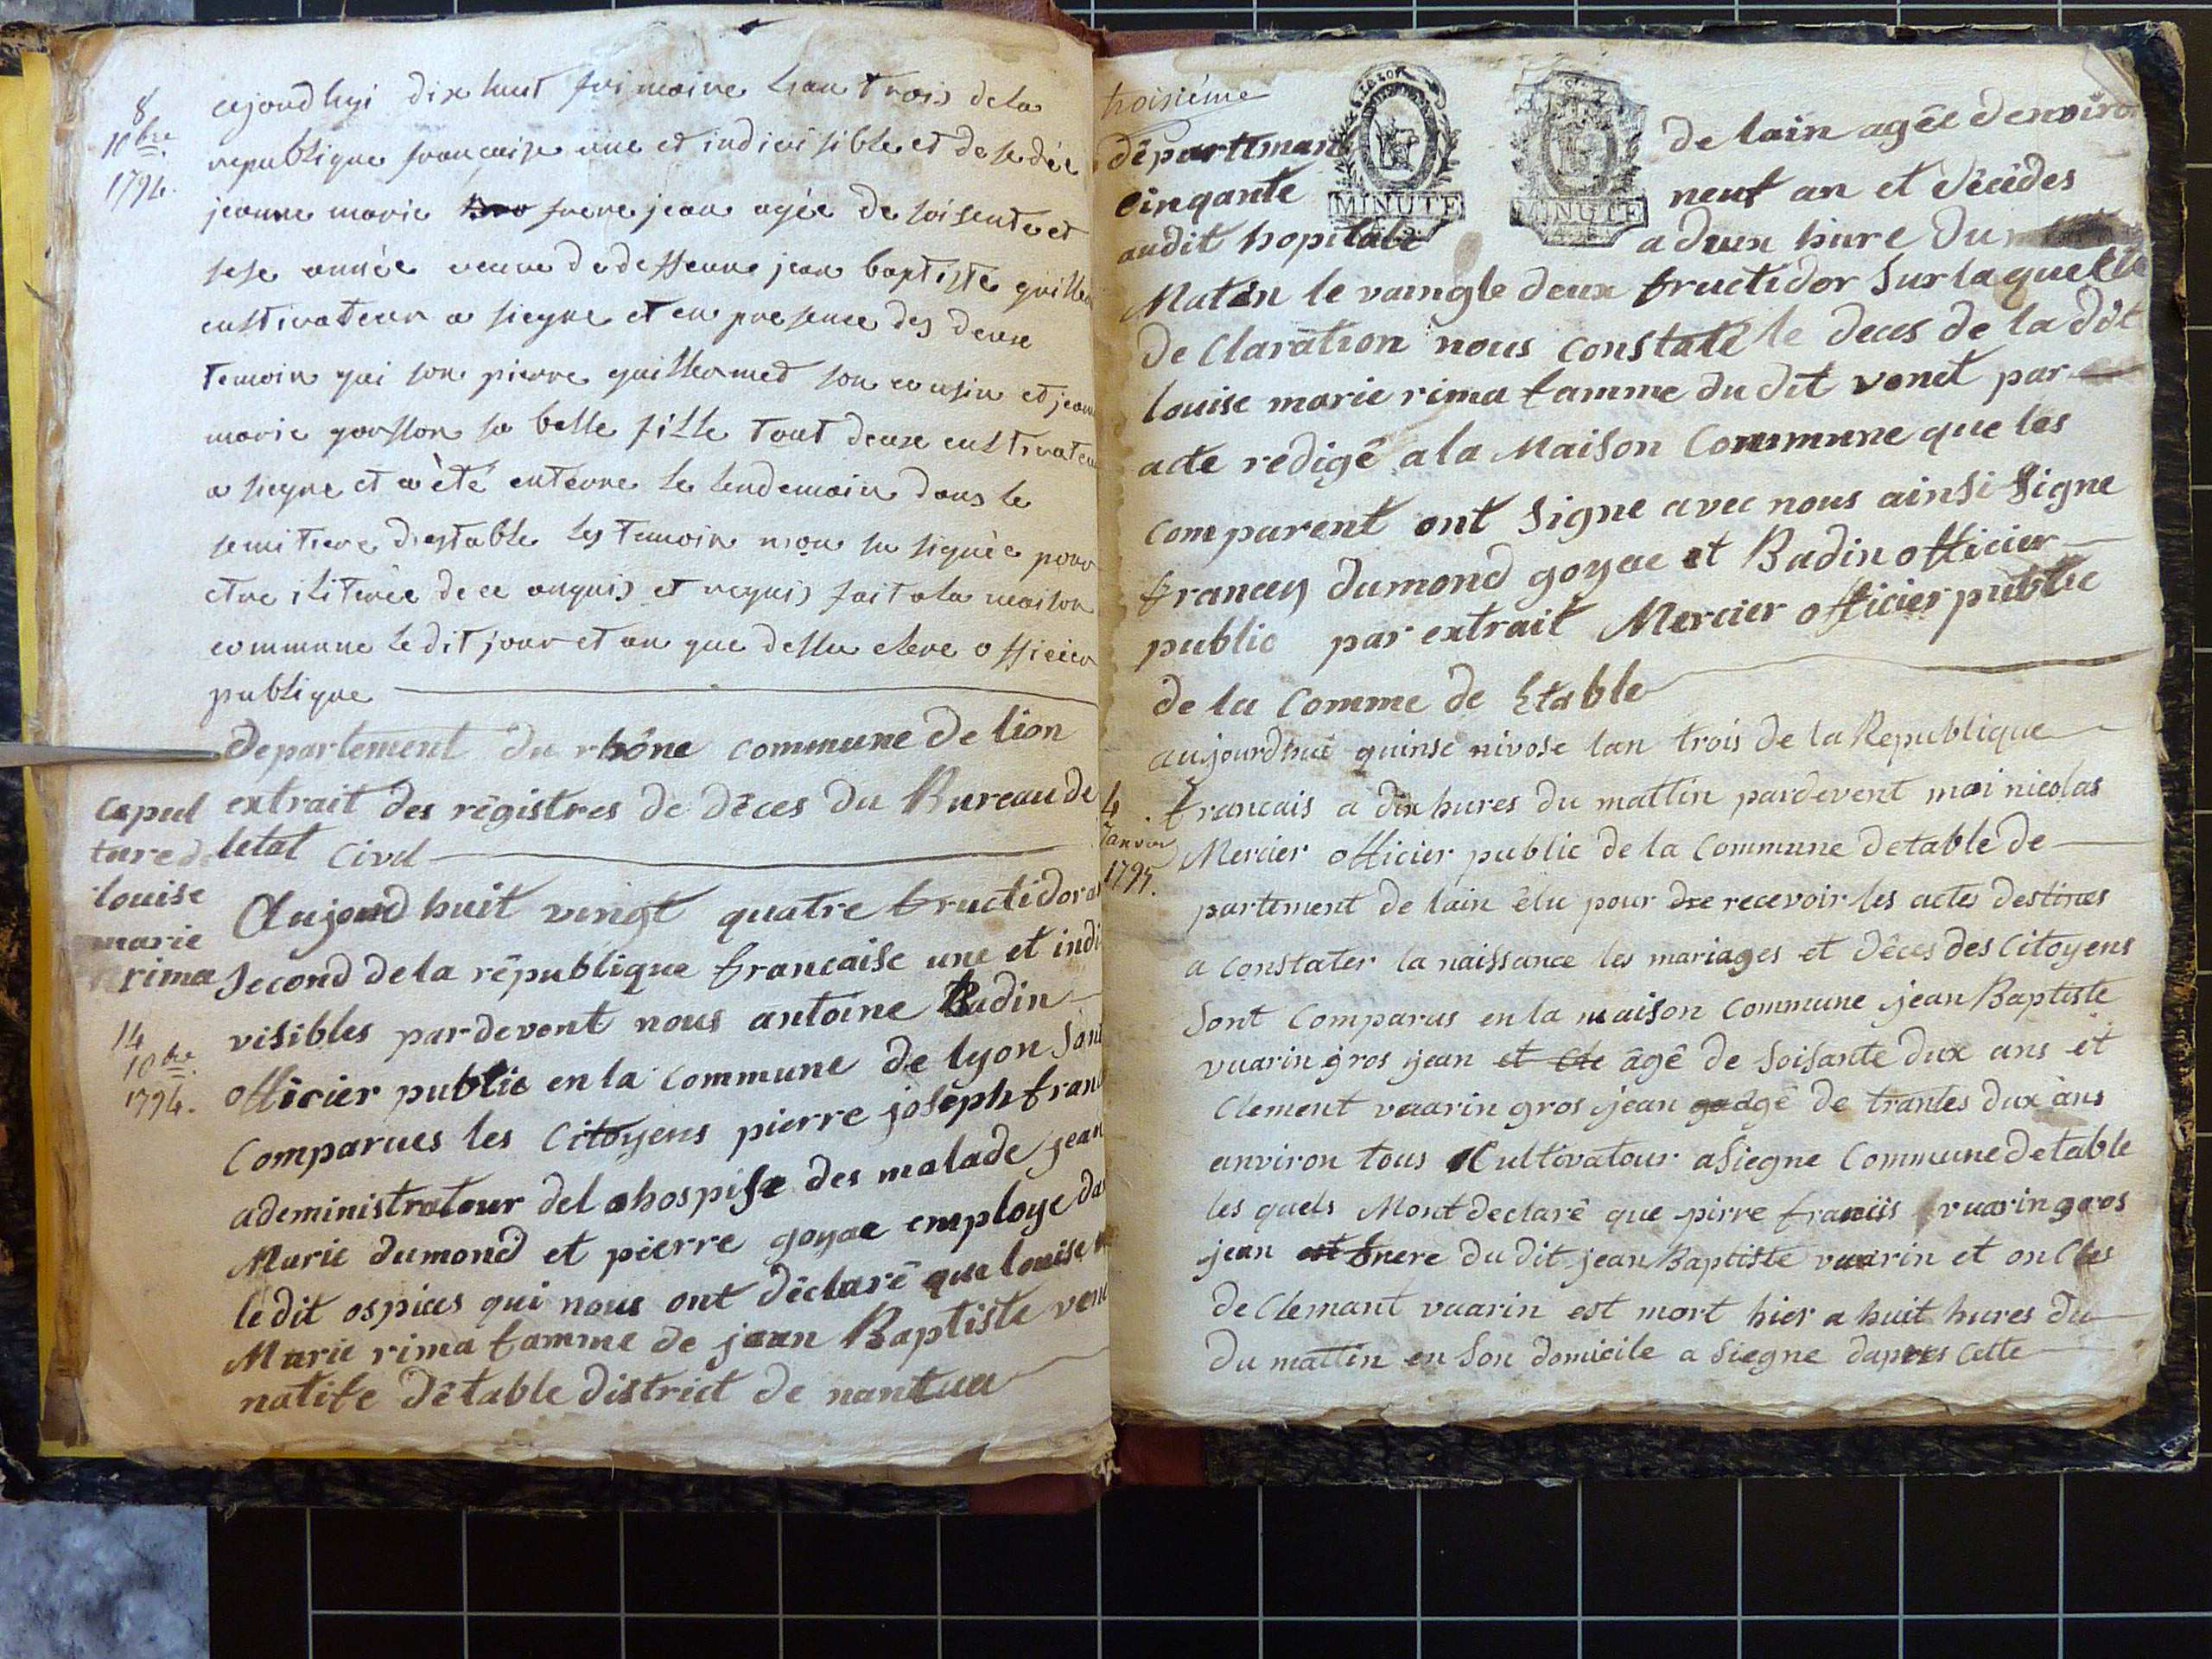 8
10bre
1794.
aujourdhyi dix huit frimaire lan trois dela
republique francaise une et indivisible et desedée
jeanne marie frere jean agée de soisente et
sese année veuve de deffeunt jean baptiste guillermet
cultivateur a siegne et en presence des deuxe
temoin qui son pierre guillermed son cousin et jeanne
marie gonsson sa belle fille tout deuxe cultivateur
a siegne et a été enterre le lendemain dans le
semitiere destable les temoin non su signée pour
etre iliterée de ce anquis et requis fait a la maison
commune le dit jour et an que dessu clere officier
publique
departement du rhône commune de lion
extrait des régistres de dèces du Bureau de
letat Civil
Cepul
ture de
louise
marie
rima
14
10bre
1794.
Aujourd huit vingt quatre fructidor an
Second de la république francaise une et indi
visibles pardevent nous antoine Badin
officier public en la Commune de lyon Sont
Comparues les Citoyens pierre joséph franc
administrateur del ahospise des malade jean
Marie dumond et pierre goyae employe da
ledit ospices qui nous ont déclaré que louise
Marie rima famme de jean Baptiste vene
natife détable district de nantua
troisième
départiman de lain agée denviron
Cinqante neuf an et décédes
audit hopitale a deux hure du
MINUTE
MINUTE
Matin le vaingte deux fructidor Sur laquelle
de Claration nous constate le deces de la dit
louise marie rima famme du dit venet par
acte rédigé a la Maison Commune que les
comparent ont Signe avec nous ainsi Signe
francey dumond goyae et Badin officier
public par extrait Mercier officier public
de la Comme de Etable
4
Janvier
1795.
aujourdhui quinse nivose lan trois de la Republique
francais a dix hures du mattin pardevent moi nicolas
Mercier officier public de la Commune detable de
partiment de lain élu pour dre recevoir les actes destines
a constater la naissance les mariages et déces des Citoyens
Sont Comparus en la maison Commune jean Baptiste
vuarin gros jean et Cle âgé de Soisante dux ans et
Clement vuarin gros jean agé de trantes dux ans
anviron tous Cultivatour a Siegne Commune detable
les quels Mont declaré que pirre franciis vuarin gros
jean est frere du dit jean Baptiste vuarin et on Cles
de Clemant vuarin est mort hier a huit hures du
du mattin en Son domicile a Siegne dapres Cette